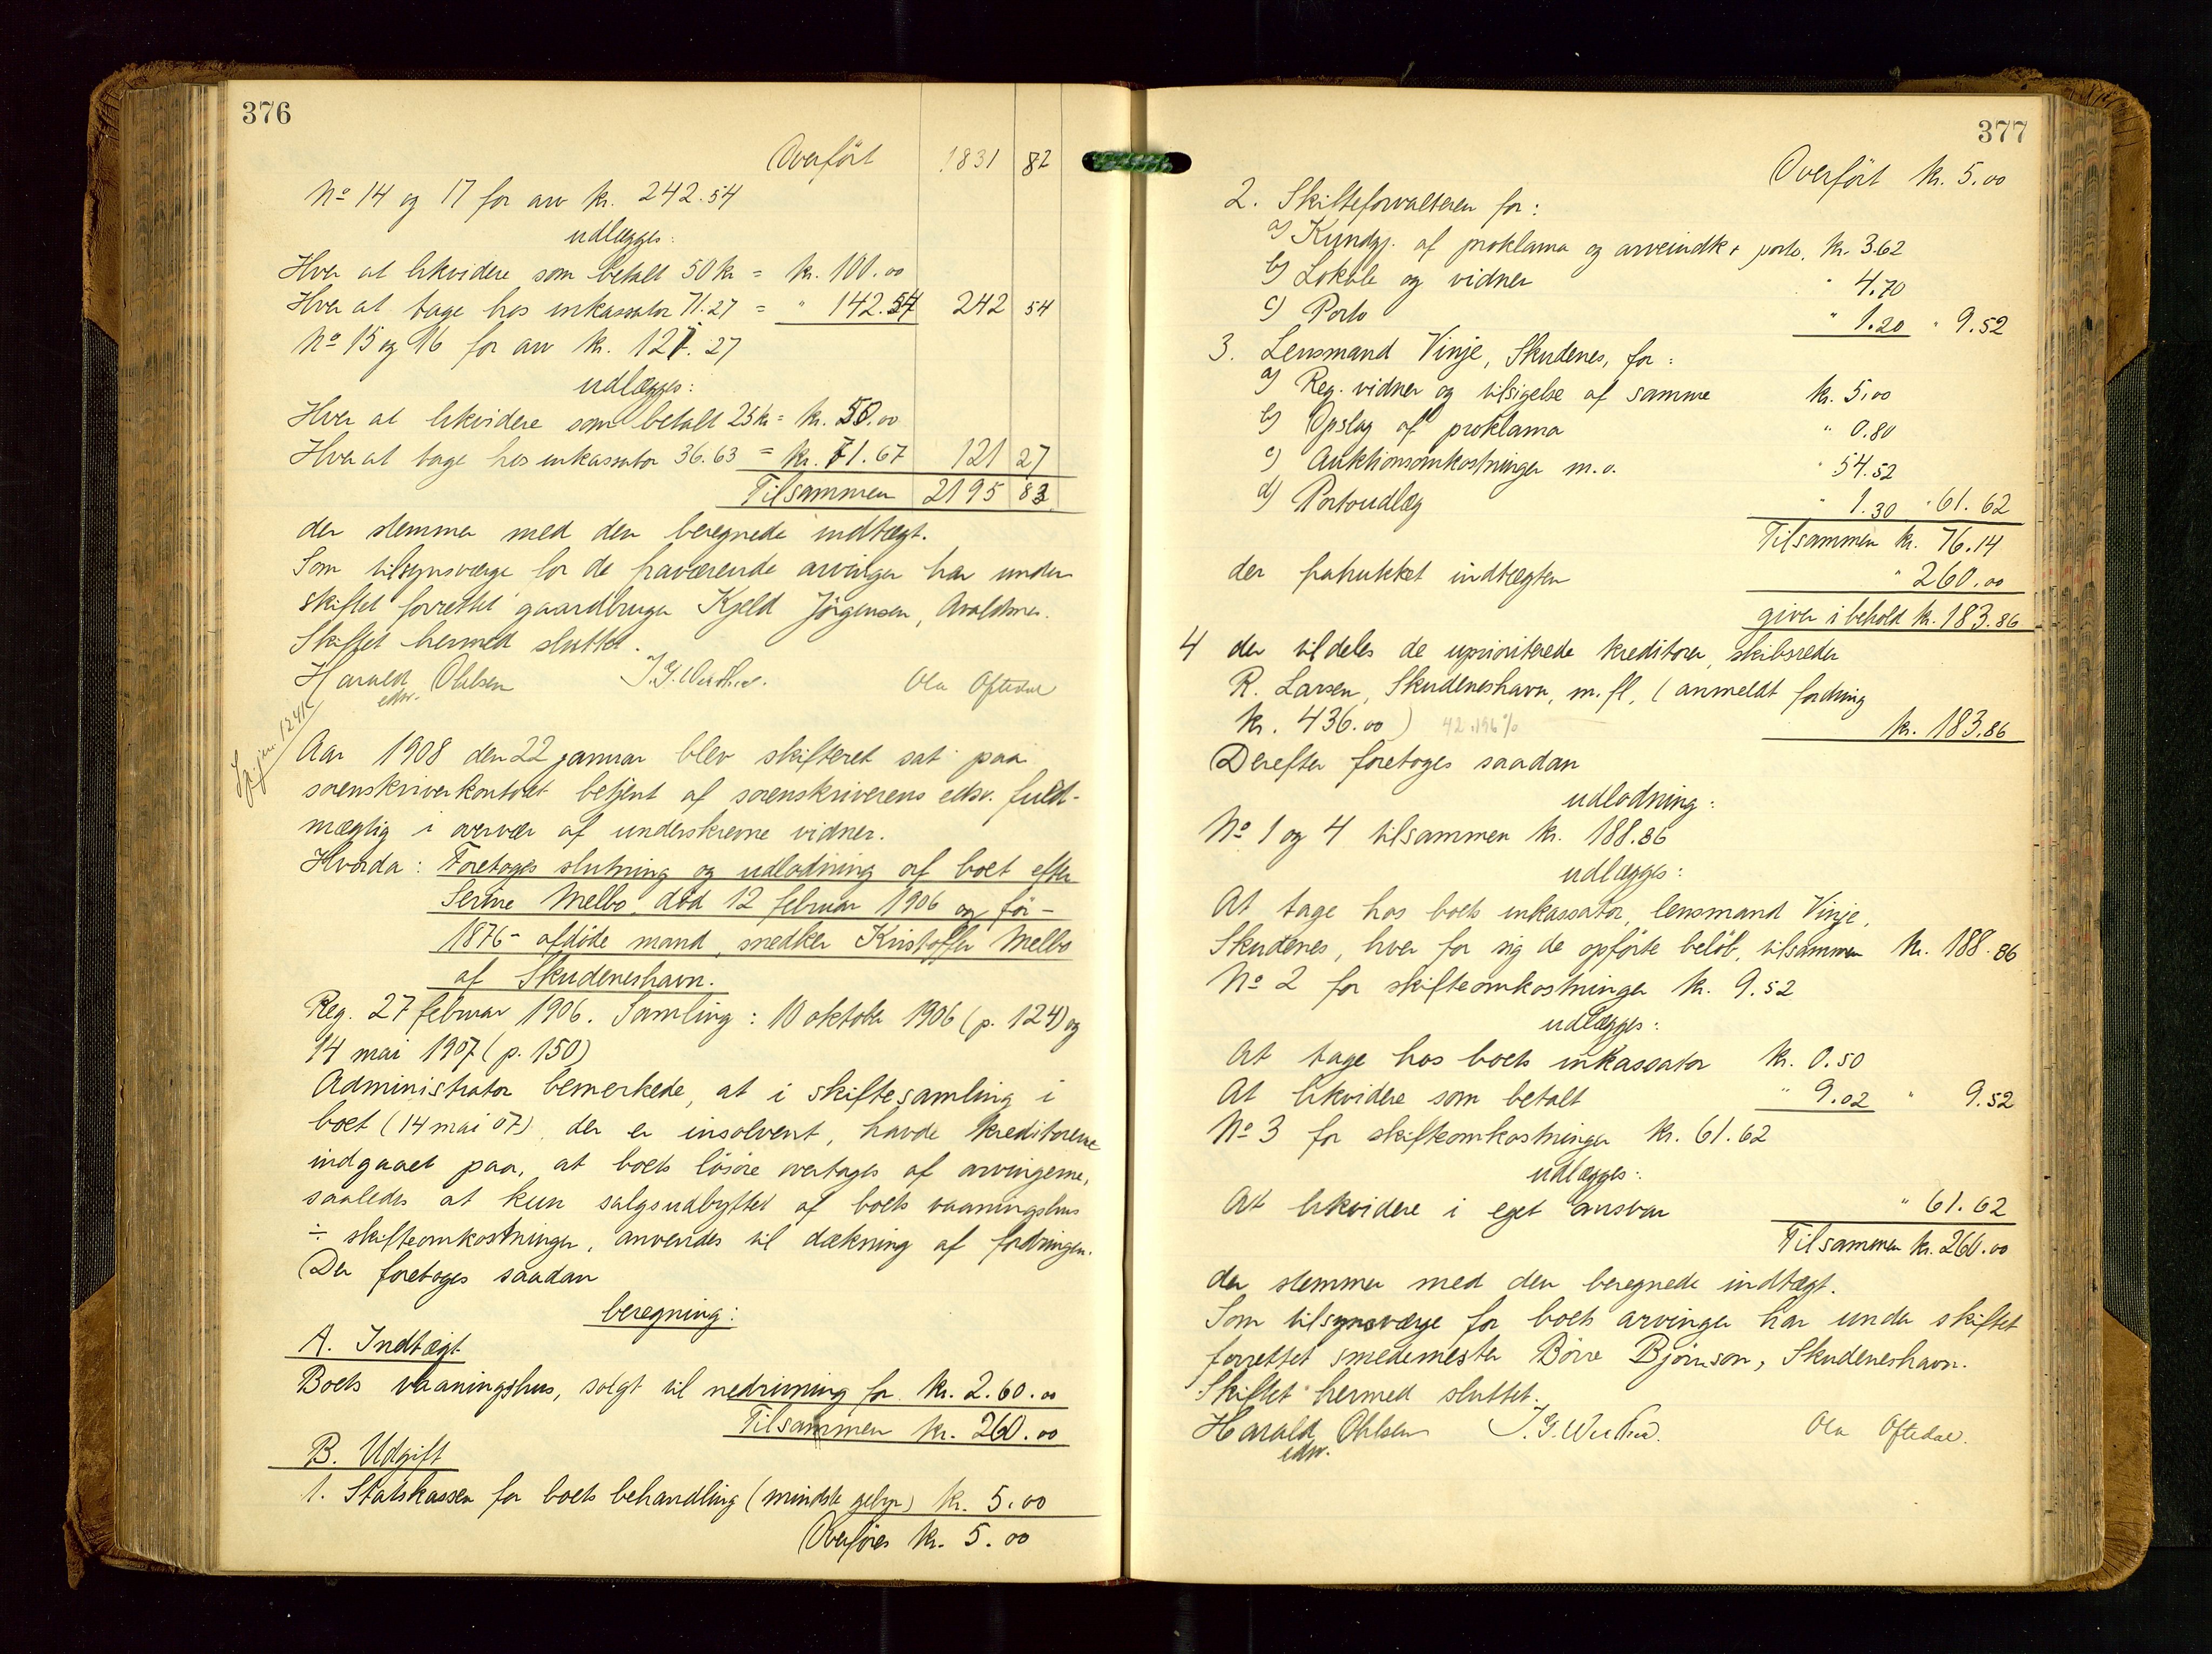 376
Overført 1831 82
No 14 og 17 for arv kr. 242.54
udlægges:
Hver at likvidere som betalt 50 kr = kr. 100.00
Hver at tage hos inkassator 71.27 = " 142.54 242 54
No 15 og 16 for arv kr. 121.27
udlægges:
Hver at likvidere som betalt 25 kr = kr. 50.00
Hver at tage hos inkassator 36.63 = kr. 71.67 121 27
Tilsammen 2195 83
der stemmer med den beregnede indtægt.
Som tilsynsværge for de fraværende arvinger har under
skiftet forrettet gaardbruger Kjeld Jørgensen, Avaldsnes.
Skiftet hermed sluttet.
Harald Ohlsen Ola Oftedal
edsv.
Aar 1908 den 22 januar blev skifteret sat paa
sorenskriverkontoret betjent af sorenskriverens edsv. fuld-
mægtig i overvær af underskrevne vidner.
Hvorda: Foretoges slutning og udlodning af boet efter
Serine Melbo, død 12 februar 1906 og før -
1876 - afdøde mand, snedker Kristoffer Melbo
af Skudeneshavn.
Reg. 27 februar 1906. Samling: 10 oktober 1906 (p. 124) og
14 mai 1907 (p. 150)
Administrator bemerkede, at i skiftesamling i
boet (14 mai 07), der er insolvent, havde kreditorerne
indgaaet paa, at boets løsøre overtages af arvingerne,
saaledes at kun salgsudbyttet af boets vaaningshus
÷ skifteomkostninger, anvendes til dækning af fordringer.
Der foretoges saadan
beregning:
A. Indtægt
Boets vaaningshus, solgt til nedrivning for kr. 2.60.00
Tilsammen kr. 260.00
B. Udgift
1. Statskassen for boets behandling (mindste gebyr) kr. 5.00
Overføres kr. 5.00
377
Overført kr. 5.00
2. Skifteforvalteren for:
a) Kundgj. af proklama og arveindk + porto. kr. 3.62
b) Lokale og vidner " 4.70
c) Porto " 1.20 " 9.52
3. Lensmand Vinje, Skudenes, for:
a) Reg. vidner og tilsigelse af samme kr. 5.00
b) Opslag af proklama " 0.80
c) Auktionsomkostninger m.v. " 54.52
d) Portoudlæg " 1.30 " 61.62
Tilsammen kr. 76.14
der fratrukket indtægten " 260.00
giver i behold kr. 183.86
4 der tildeles de uprioriterede kreditorer, skibsreder
R. Larsen, Skudeneshavn, m.fl, (anmeldt fordring
kr. 436.00) 42.196% kr. 183.86
Derefter foretoges saadan
udlodning:
No 1 og 4 tilsammen kr. 188.86
udlægges:
At tage hos boets inkassator, lensmand Vinje,
Skudenes, hver for sig de opførte beløb, tilsammen kr. 188.86
No 2 for skifteomkostninger kr. 9.52
udlægges:
At tage hos boets inkassator kr. 0.50
At likvidere som betalt " 9.02 " 9.52
No 3 for skifteomkostninger kr. 61.62
udlægges:
At likvidere i eget ansvar " 61.62
Tilsammen kr. 260.00
der stemmer med den beregnede indtægt.
Som tilsynsværge for boets arvinger har under skiftet
forrettet smedemester Børre Bjørnson, Skudeneshavn.
Skiftet hermed sluttet.
Harald Ohlsen Ola Oftedal.
edsv.